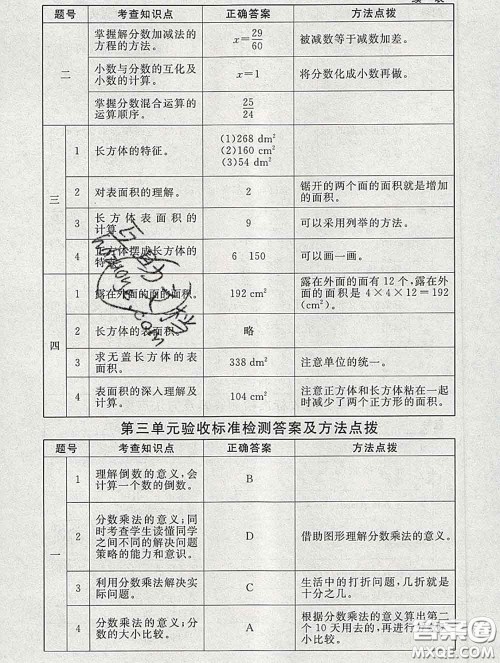 续 表
题号 考查知识点 正确答案 方法点拨
二
掌握解分数加减法的
方程的方法。
x=29/60
被减数等于减数加差。
小数与分数的互化及
小数的计算。
x=1
将分数化成小数再做。
掌握分数混合运算的
运算顺序。
25/24
三
1 长方体的特征。
(1)268 dm²
(2)160 cm²
(3)54 dm²
2 对表面积的理解。 2
锯开的两个面的面积就是增加
的面积。
3 长方体表面积的
计算。
9 可以采用列举的方法。
4 正方体摆成长方体的
特
6 150 可以画一画。
四
1 露在外面的面的面积。 192 cm²
露在外面的面有 12 个,露在外
面的面积是 4×4×12=192
(cm²)。
2 长方体的表面积。 略
3 求无盖长方体的表
面积。
338 dm² 注意单位的统一。
4 表面积的深入理解及
计算。
104 cm²
注意正方体和长方体粘在一起
时减少了两个正方形的面积。
第三单元验收标准检测答案及方法点拨
题号 考查知识点 正确答案 方法点拨
一
1 理解倒数的意义,会
计算一个数的倒数。
B
2 分数乘法的意义;同
时考查学生读懂同学
之间不同的解决问题
策略的能力和意识。
D 借助图形理解分数乘法的意义。
3 利用分数乘法解决实
际问题。
C
生活中的打折问题,几折就是
十分之几。
4 分数乘法的意义;分
数的大小比较。
A
根据分数乘法的意义算出第二
个 10 天用去的,再进行
小比较。
答案圈
MXQE.COM